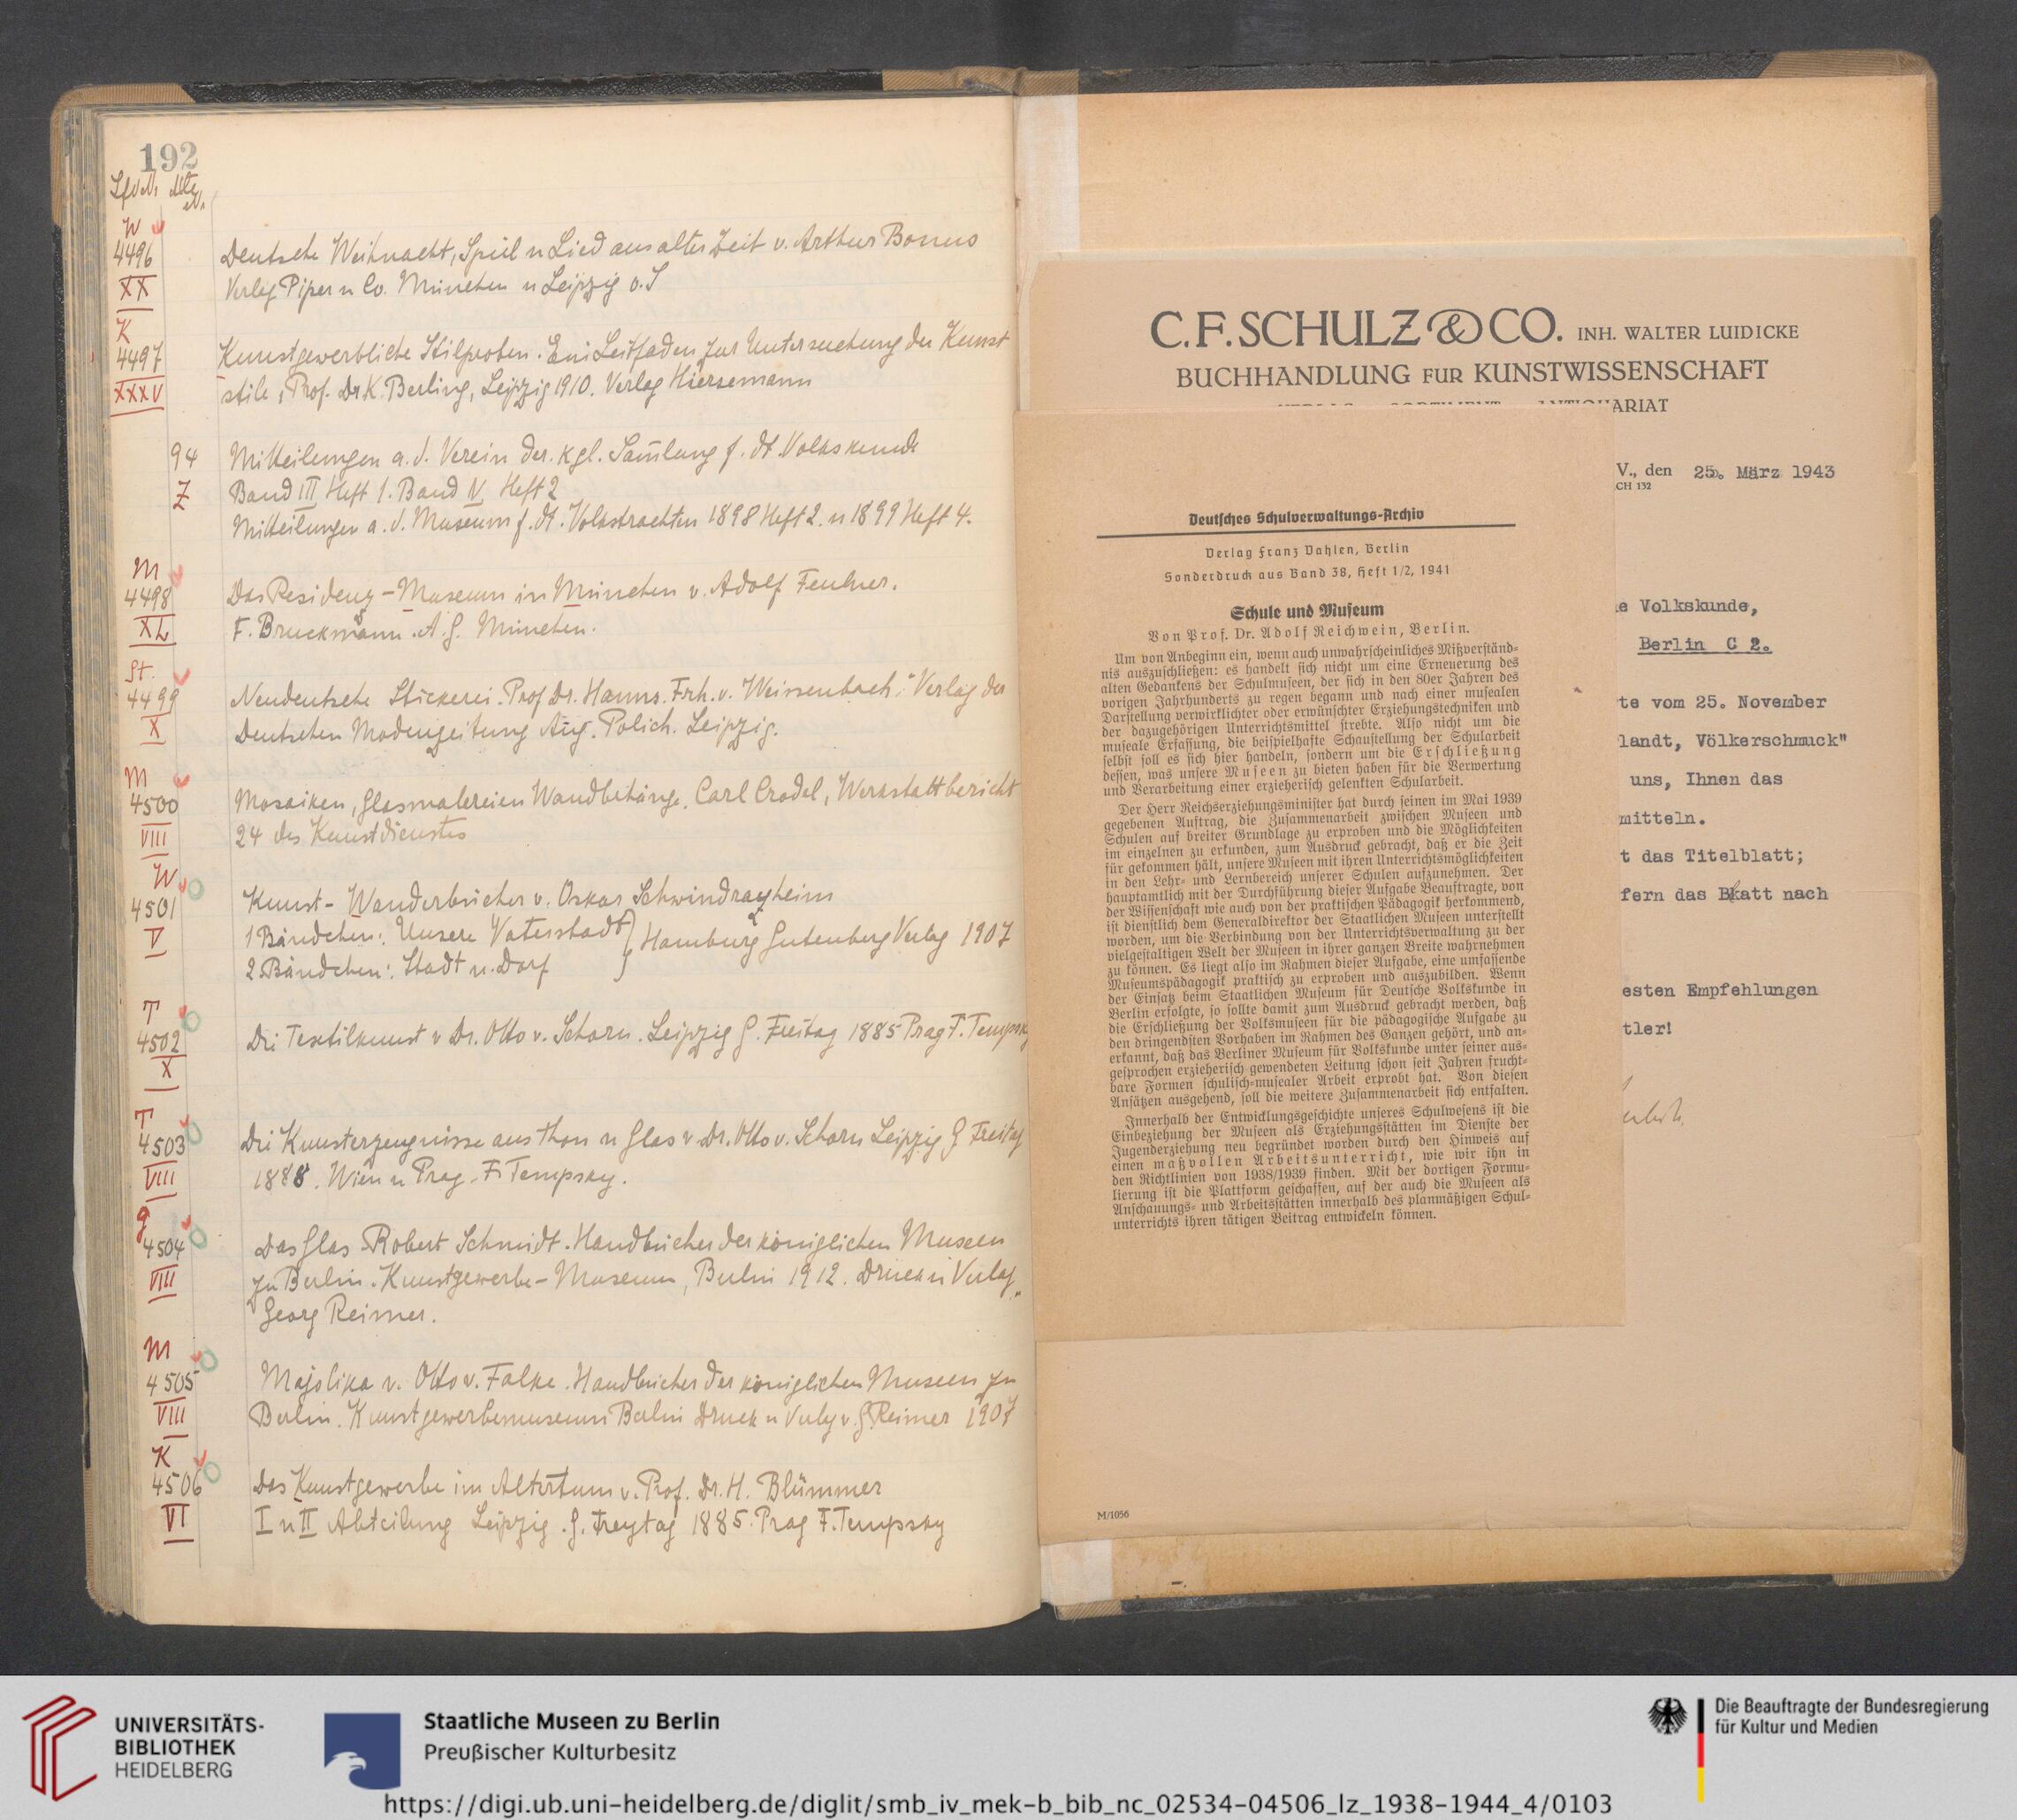 192
W
4496
XX
Deutsche Weihnacht, Spiel u Lied aus alter Zeit v. Arthur Bonus
Verlag Piper u Co. München u Leipzig o. J
K
4497
XXXV
Kunstgewerbliche Stilproben. Ein Leitfaden zur Untersuchung der Kunst
stile, Prof. Dr K. Berling, Leipzig 1910. Verlag Hiersemann
94
Z
Mitteilungen a. d. Verein der. kgl. Sam̄lung f. dt. Volkskunde
Band III Heft 1. Band IV Heft 2
Mitteilungen a. d. Museum f. dt. Volkstrachten 1898 Heft 2. u 1899 Heft 4.
M
4498
XL
Das Residenz-Museum in München v. Adolf Feulner.
F. Bruckmann. A. G. München.
St.
4499
X
Neudeutsche Stickerei. Prof Dr. Hanns. Frh. v. Weissenbach. Verlag der
Deutschen Modenzeitung Aug. Polich. Leipzig.
M
4500
VIII
Mosaiken, Glasmalereien Wandbehänge. Carl Crodel, Werkstattbericht
24 des Kunstdienstes
W
4501
V
Kunst-Wanderbücher v. Oskar Schwindrazheim
1 Bändchen: Unsere Vaterstadt } Hamburg Gutenberg Verlag 1907
2. Bändchen: Stadt u. Dorf
T
4502
X
Die Textilkunst v Dr. Otto v. Schorn. Leipzig G. Freitag 1885 Prag F. Tempsky
T
4503
VIII
Die Kunsterzeugnisse aus Thon u Glas v Dr. Otto v. Schorn Leipzig G Freitag
1888. Wien u Prag. F. Tempsky.
G
4504
VIII
Das Glas Robert Schmidt. Handbücher der königlichen Museen
zu Berlin. Kunstgewerbe-Museum, Berlin 1912. Druck u Verlag
Georg Reimer.
M
4505
VIII
Majolika v. Otto v. Falke. Handbücher der königlichen Museen zu
Berlin. Kunstgewerbemuseum Berlin Druck u Verlag v. G. Reimer 1907
K
4506
VI
Das Kunstgewerbe im Altertum v. Prof. Dr. H. Blümmer
I u II Abteilung Leipzig. G. Freytag 1885. Prag F. Tempsky
C. F. SCHULZ & CO. INH. WALTER LUIDICKE
BUCHHANDLUNG FUR KUNSTWISSENSCHAFT
V., den 25. März 1943
CH 132
e Volkskunde,
Berlin C 2.
te vom 25. November
landt, Völkerschmuck"
uns, Ihnen das
mitteln.
t das Titelblatt;
fern das Blatt nach
esten Empfehlungen
tler!
M/1056
Deutsches Schulverwaltungs-Archiv
Verlag Franz Vahlen, Berlin
Sonderdruck aus Band 38, Heft 1/2, 1941
Schule und Museum
Von Prof. Dr. Adolf Reichwein, Berlin.
Um von Anbeginn ein, wenn auch unwahrscheinliches Mißverständ-
nis auszuschließen: es handelt sich nicht um eine Erneuerung des
alten Gedankens der Schulmuseen, der sich in den 80er Jahren des
vorigen Jahrhunderts zu regen begann und nach einer musealen
Darstellung verwirklichter oder erwünschter Erziehungstechniken und
der dazugehörigen Unterrichtsmittel strebte. Also nicht um die
museale Erfassung, die beispielhafte Schaustellung der Schularbeit
selbst soll es sich hier handeln, sondern um die Erschließung
dessen, was unsere Museen zu bieten haben für die Verwertung
und Verarbeitung einer erzieherisch gelenkten Schularbeit.
Der Herr Reichserziehungsminister hat durch seinen im Mai 1939
gegebenen Auftrag, die Zusammenarbeit zwischen Museen und
Schulen auf breiter Grundlage zu erproben und die Möglichkeiten
im einzelnen zu erkunden, zum Ausdruck gebracht, daß er die Zeit
für gekommen hält, unsere Museen mit ihren Unterrichtsmöglichkeiten
in den Lehr- und Lernbereich unserer Schulen aufzunehmen. Der
hauptamtlich mit der Durchführung dieser Aufgabe Beauftragte, von
der Wissenschaft wie auch von der praktischen Pädagogik herkommend,
ist dienstlich dem Generaldirektor der Staatlichen Museen unterstellt
worden, um die Verbindung von der Unterrichtsverwaltung zu der
vielgestaltigen Welt der Museen in ihrer ganzen Breite wahrnehmen
zu können. Es liegt also im Rahmen dieser Aufgabe, eine umfassende
Museumspädagogik praktisch zu erproben und auszubilden. Wenn
der Einsatz beim Staatlichen Museum für Deutsche Volkskunde in
Berlin erfolgte, so sollte damit zum Ausdruck gebracht werden, daß
die Erschließung der Volksmuseen für die pädagogische Aufgabe zu
den dringendsten Vorhaben im Rahmen des Ganzen gehört, und an-
erkannt, daß das Berliner Museum für Volkskunde unter seiner aus-
gesprochen erzieherisch gewendeten Leitung schon seit Jahren frucht-
bare Formen schulisch-musealer Arbeit erprobt hat. Von diesen
Ansätzen ausgehend, soll die weitere Zusammenarbeit sich entfalten.
Innerhalb der Entwicklungsgeschichte unseres Schulwesens ist die
Einbeziehung der Museen als Erziehungsstätten im Dienste der
Jugenderziehung neu begründet worden durch den Hinweis auf
einen maßvollen Arbeitsunterricht, wie wir ihn in
den Richtlinien von 1938/1939 finden. Mit der dortigen Formu-
lierung ist die Plattform geschaffen, auf der auch die Museen als
Anschauungs- und Arbeitsstätten innerhalb des planmäßigen Schul-
unterrichts ihren tätigen Beitrag entwickeln können.
UNIVERSITÄTS-
BIBLIOTHEK
HEIDELBERG
Staatliche Museen zu Berlin
Preußischer Kulturbesitz
Die Beauftragte der Bundesregierung
für Kultur und Medien
https://digi.ub.uni-heidelberg.de/diglit/smb_iv_mek-b_bib_nc_02534-04506_lz_1938-1944_4/0103